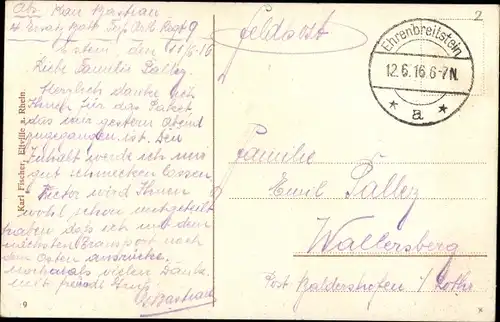 Abs. Kan. Bastian
4 Ersatz Batt. Fuß Art. Regt 9
den 11/6-16
Liebe Familie Pallez.
Herzlich danke ich
Ihnen für das Paket
das mir gestern Abend
zugegangen ist. Den
Inhalt werde ich mir
gut schmecken lassen
Victor wird Ihnen
wohl schon mitgeteilt
haben daß ich mit dem
nächsten Transport nach
dem Osten ausrücke.
nochmals vielen Dank.
mit freundl. Gruß
Bastian
Karl Fischer, Eltville a. Rhein.
9
Feldpost
2
Ehrenbreitstein
12.6.16.6-7N.
* a *
Familie
Emil Pallez
Wallersberg
Post Baldershofen / Lothr.